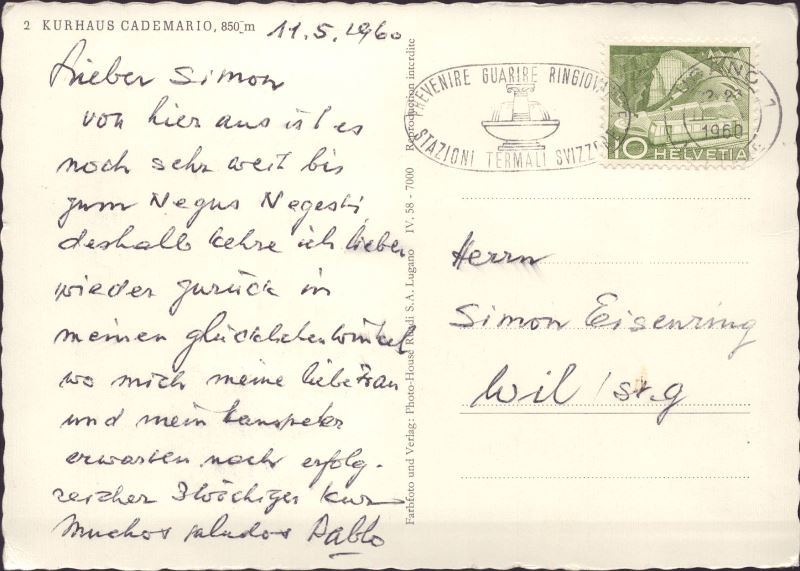 2 KURHAUS CADEMARIO, 850 m
11.5.1960
Lieber Simon
von hier aus ist es
noch sehr weit bis
zum Negus Negesti,
deshalb kehre ich lieber
wieder zurück in
meinen glücklichen Winkel
wo mich meine liebe Frau
und mein Hanspeter
erwarten nach erfolg-
reicher 3 wöchiger Kur
Muchos saludos Pablo
Farbfoto und Verlag: Photo-House Rüedi S.A. Lugano IV. 58 - 7000 Reproduction interdite
PREVENIRE GUARIRE RINGIOVA
STAZIONI TERMALI SVIZZ
1960
10 HELVETIA
Herrn
Simon Eisenring
Wil / st.g